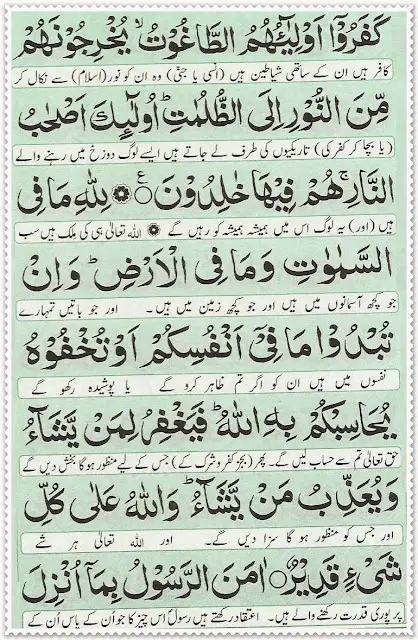 كَفَرُوْۤا اَوْلِيٰٓـئُهُمُ الطَّاغُوْتُۙ يُخْرِجُوْنَهُمْ
کافر ہیں ان کے ساتھی شیاطین ہیں (انسی یا جنی) وہ ان کو نور (اسلام) سے نکال کر
مِّنَ النُّوْرِ اِلَى الظُّلُمٰتِؕ اُولٰٓئِكَ اَصْحٰبُ
(یا بچا کر کفر کی) تاریکیوں کی طرف لے جاتے ہیں ایسے لوگ دوزخ میں رہنے والے
النَّارِۚ هُمْ فِيْهَا خٰلِدُوْنَ ۠ لِلّٰهِ مَا فِى
ہیں (اور) یہ لوگ اس میں ہمیشہ ہمیشہ کو رہیں گے اللہ تعالیٰ ہی کی ملک ہیں سب
السَّمٰوٰتِ وَمَا فِى الْاَرْضِؕ وَاِنْ
جو کچھ آسمانوں میں ہیں اور جو کچھ زمین میں ہیں۔ اور جو باتیں تمہارے
تُبْدُوْا مَا فِىْۤ اَنْفُسِكُمْ اَوْ تُخْفُوْهُ
نفسوں میں ہیں ان کو اگر تم ظاہر کرو گے یا پوشیدہ رکھو گے
يُحَاسِبْكُمْ بِهِ اللّٰهُؕ فَيَغْفِرُ لِمَنْ يَّشَآءُ
حق تعالیٰ تم سے حساب لیں گے۔ پھر (بجز کفر و شرک کے) جس کے لیے منظور ہوگا بخش دیں گے
وَيُعَذِّبُ مَنْ يَّشَآءُؕ وَاللّٰهُ عَلٰى كُلِّ
اور جس کو منظور ہو گا سزا دیں گے۔ اور اللہ تعالیٰ ہر شے
شَىْءٍ قَدِيْرٌ اٰمَنَ الرَّسُوْلُ بِمَاۤ اُنْزِلَ
پر پوری قدرت رکھنے والے ہیں۔ اعتقاد رکھتے ہیں رسول اس چیز کا جو ان کے پاس ان کے